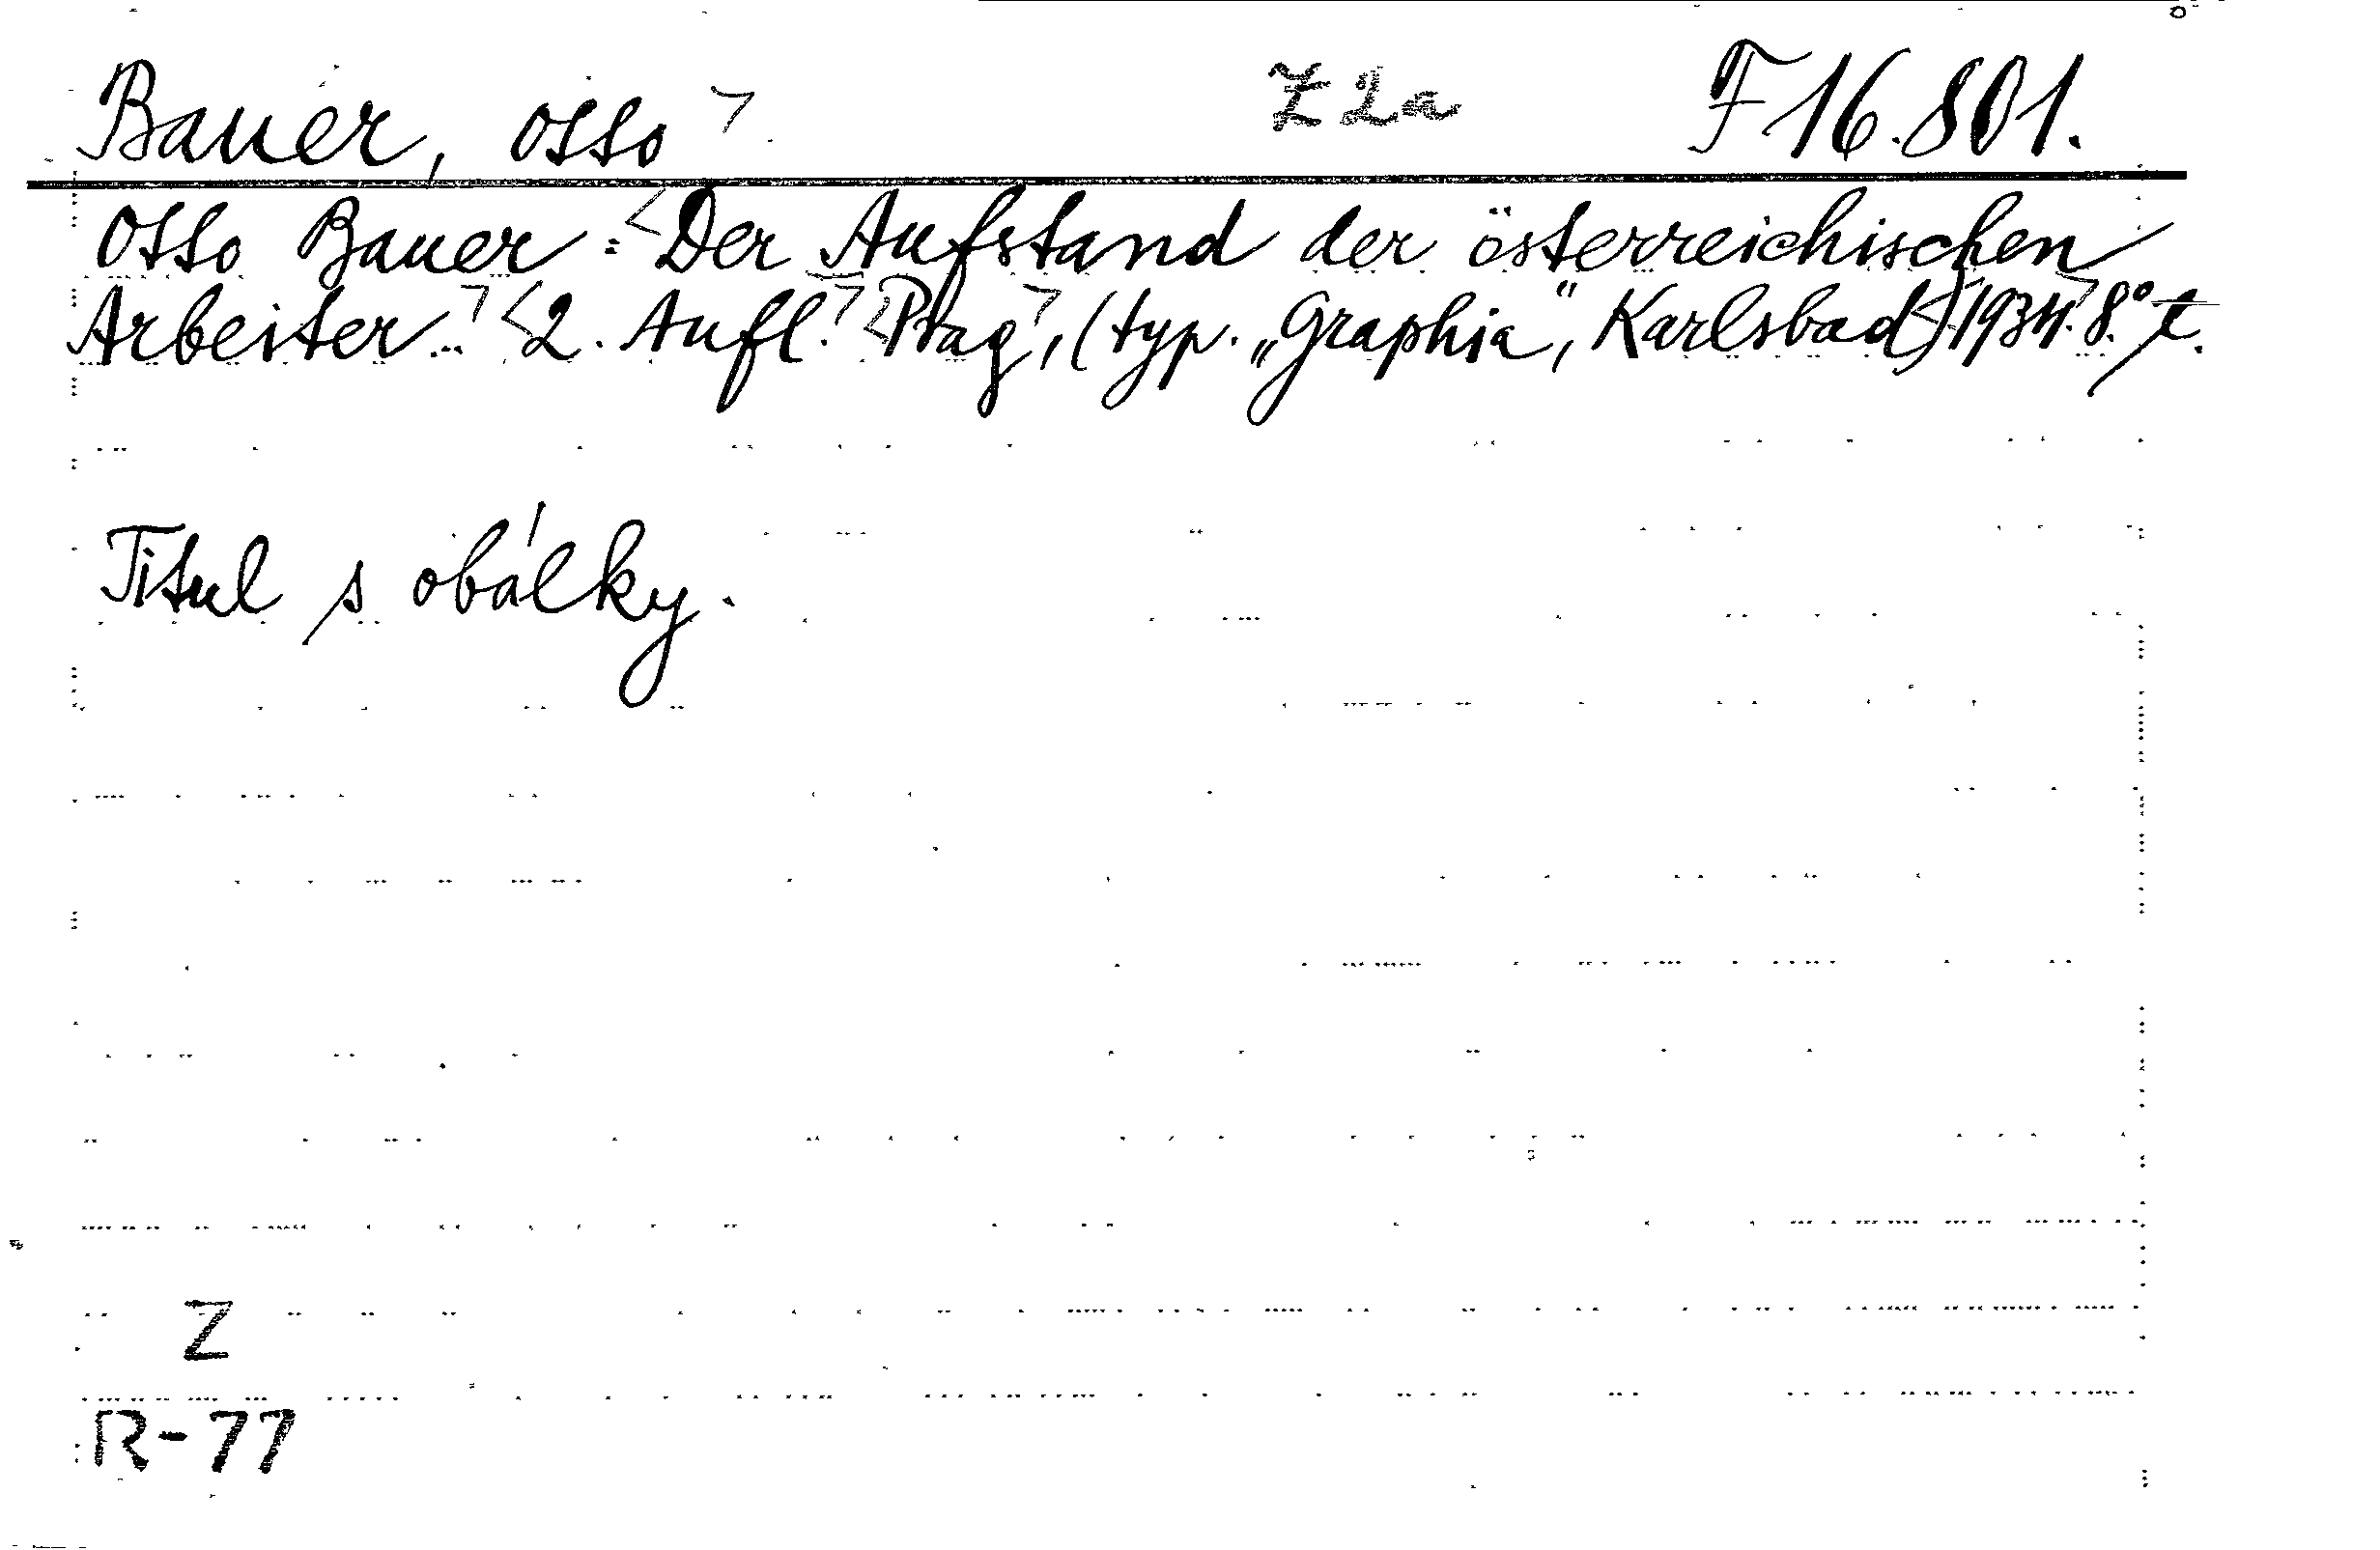 Bauer, Otto Z 2a F 16.801.
Otto Bauer: Der Aufstand der österreichischen
Arbeiter. 2. Aufl. Prag, (typ. „Graphia“, Karlsbad) 1934. 8°
Titul s obálky.
Z
R-77